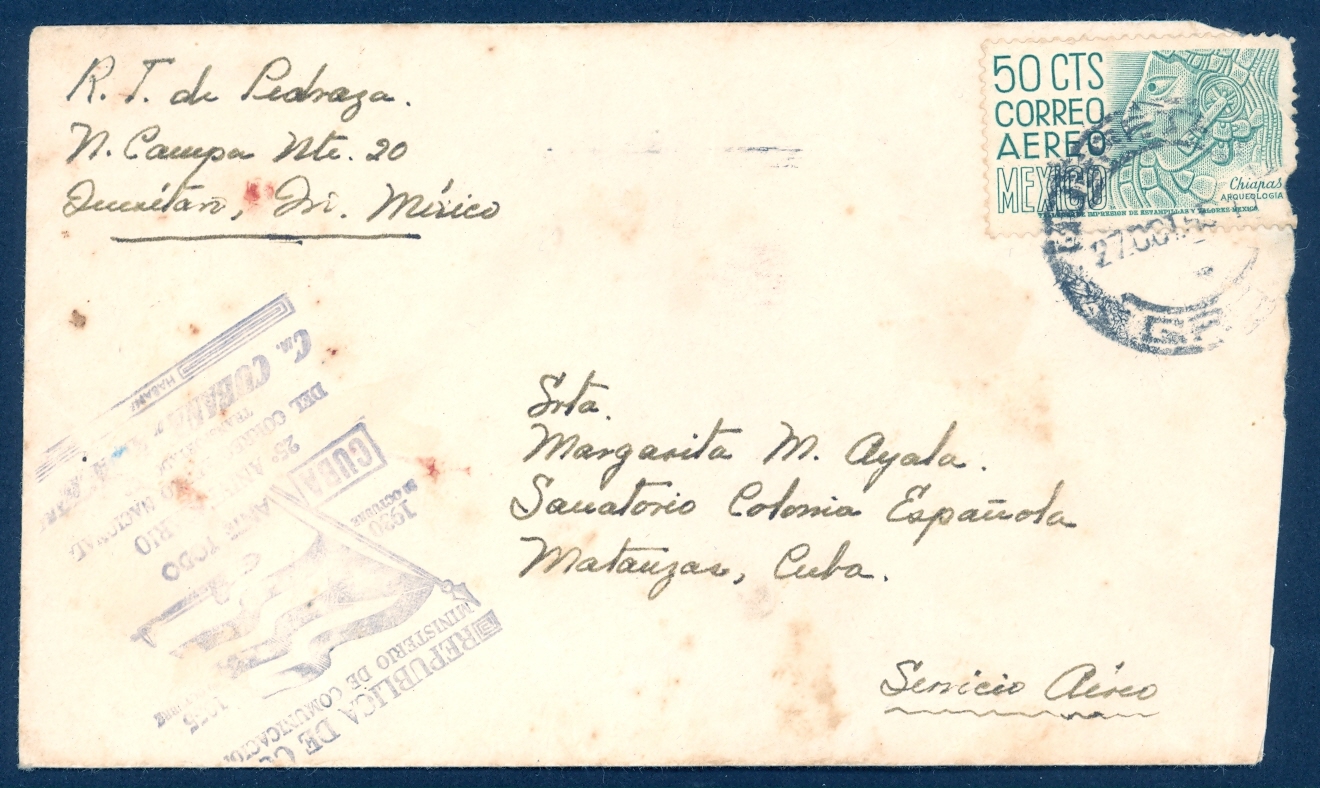 R. T. de Pedraza.
N. Campa Nte. 20
Querétaro, Qro. México
50 CTS
CORREO
AEREO
MEXICO
Chiapas
ARQUEOLOGIA
IMPRESION DE ESTAMPILLAS Y VALORES-MEXICO
27.OCT.
Srta.
Margarita M. Ayala.
Sanatorio Colonia Española
Matanzas, Cuba.
Servicio Aéreo
REPUBLICA DE
MINISTERIO DE
1930
OCTUBRE
1955
CUBA
ANTE TODO
25º
DEL CORREO NACIONAL
CIA. CUBANA
HABANA